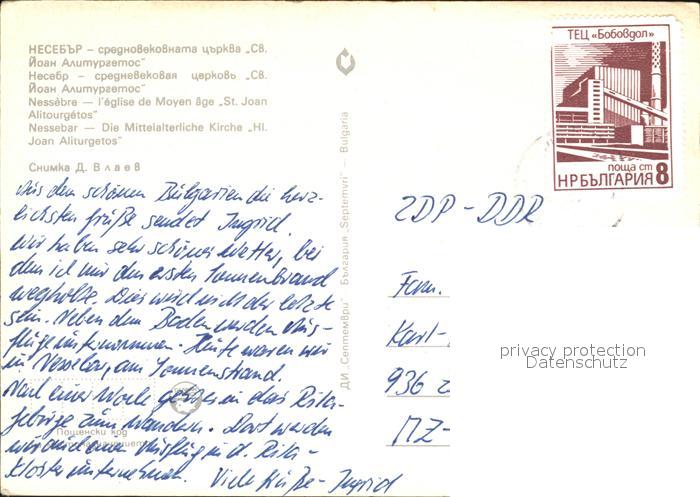 НЕСЕБЪР – средновековната църква „Св.
Йоан Алитургетос"
Несебр – средневековая церковь „Св.
Йоан Алитургетос"
Nessèbre — l'église de Moyen âge „St. Joan
Alitourgétos"
Nessebar — Die Mittelalterliche Kirche „Hl.
Joan Aliturgetos"
Снимка Д. Влаев
Aus dem schönen Bulgarien die herz-
lichsten Grüße sendet Ingrid.
Wir haben sehr schönes Wetter, bei
dem ich mir den ersten Sonnenbrand
wegholte. Dies wird nicht der letzte
sein. Neben dem Baden werden Aus-
flüge unternommen. Heute waren wir
in Nessebar, am Sonnenstrand.
Nach einer Woche gehts in das Rila-
gebirge zum Wandern. Dort werden
wir auch einen Ausflug in d. Rila-
Kloster unternehmen. Viele Grüße - Ingrid
Пощенски код
ДИ „Септември" България „Septemvri" — Bulgaria
ТЕЦ «Бобовдол»
поща ст 8
НР БЪЛГАРИЯ
ZDP - DDR
Fam.
Karl-
936
MZ-
privacy protection
Datenschutz